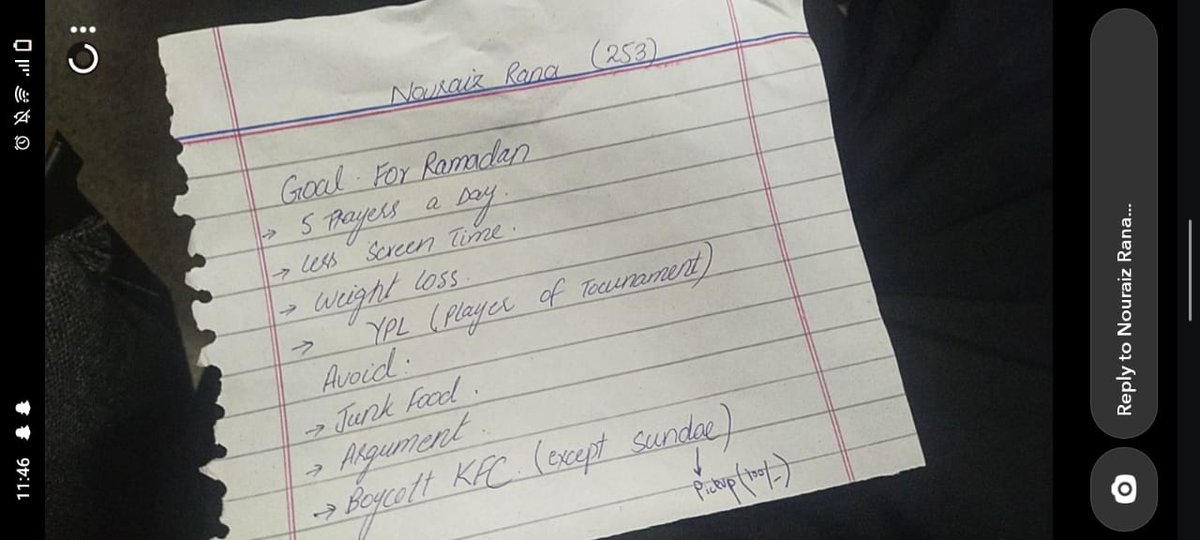 Nouraiz Rana (253)
Goal For Ramadan
→ 5 Prayers a Day.
→ Less Screen Time.
→ Weight loss.
→ YPL (Player of Tournament)
Avoid:
→ Junk Food.
→ Argument.
→ Boycott KFC. (except Sundae)
↓
Pickup (100/-)
11:46
Reply to Nouraiz Rana...